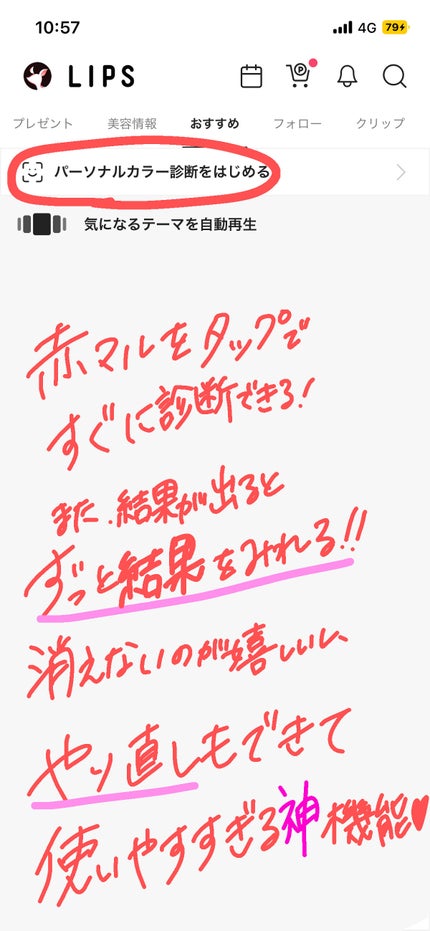 10:57
4G
79
LIPS
プレゼント 美容情報 おすすめ フォロー クリップ
パーソナルカラー診断をはじめる
気になるテーマを自動再生
赤マルをタップで
すぐに診断できる!
また、結果が出ると
ずっと結果をみれる!!
消えないのが嬉しいし、
やり直しもできて
使いやすすぎる神機能♥